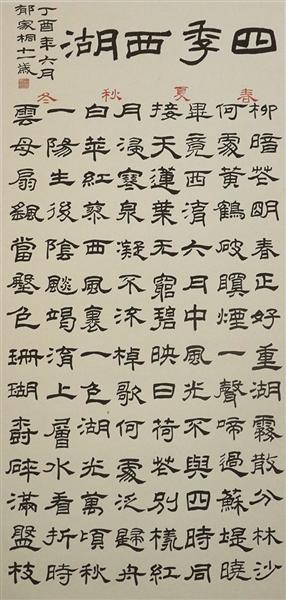 四季西湖
春 夏 秋 冬
柳暗花明春正好重湖霧散分林沙
何處黃鶴破暝煙一聲啼過蘇堤曉
畢竟西湖六月中風光不與四時同
接天蓮葉无窮碧映日荷花別樣紅
月浸寒泉凝不流棹歌何處泛歸舟
白苹紅蓼西風裏一色湖光萬頃秋
一陽生後陰飈竭湖上層水看折時
雲母扇當殿色珊瑚樹碎滿盤枝
丁酉年六月
郁家桐十一歲